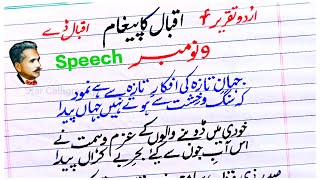 اردو تقریر
اقبال کا پیغام
اقبال ڈے
9 نومبر Speech
جہانِ تازہ کی افکارِ تازہ سے ہے نمود
کہ سنگ و خشت سے ہوتے نہیں جہاں پیدا
خودی میں ڈوبنے والوں کے عزم و ہمت نے
اس آبِ جو سے کیے بحرِ بے کراں پیدا